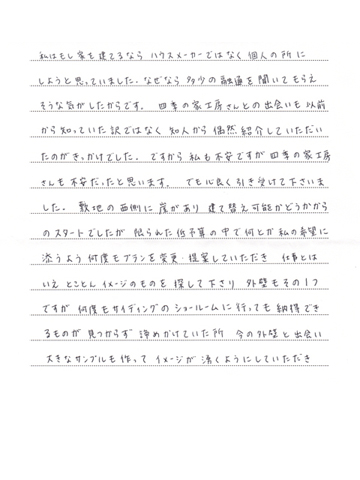 私はもし家を建てるなら ハウスメーカーではなく 個人の所に
しようと思っていました。なぜなら 多少の融通を聞いてもらえ
そうな気がしたからです。 四季の家工房さんとの出会いも 以前
から知っていた訳ではなく 知人から 偶然 紹介していただい
たのがきっかけでした。ですから 私も不安ですが 四季の家工房
さんも 不安だったと思います。 でも心良く引き受けて下さいま
した。 敷地の西側に 崖があり 建て替え可能かどうかから
のスタートでしたが 限られた低予算の中で何とか私の希望に
添うよう 何度もプランを変更・提案していただき 仕事とは
いえ とことん イメージのものを 探して下さり 外壁もその1つ
ですが 何度もサイディングのショールームに行っても 納得でき
るものが 見つからず 諦めかけていた所 今の外壁と出会い
大きなサンプルも作って イメージが 湧くようにしていただき